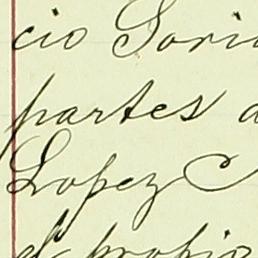 cio Soria
partes a
Lopez C
de propio